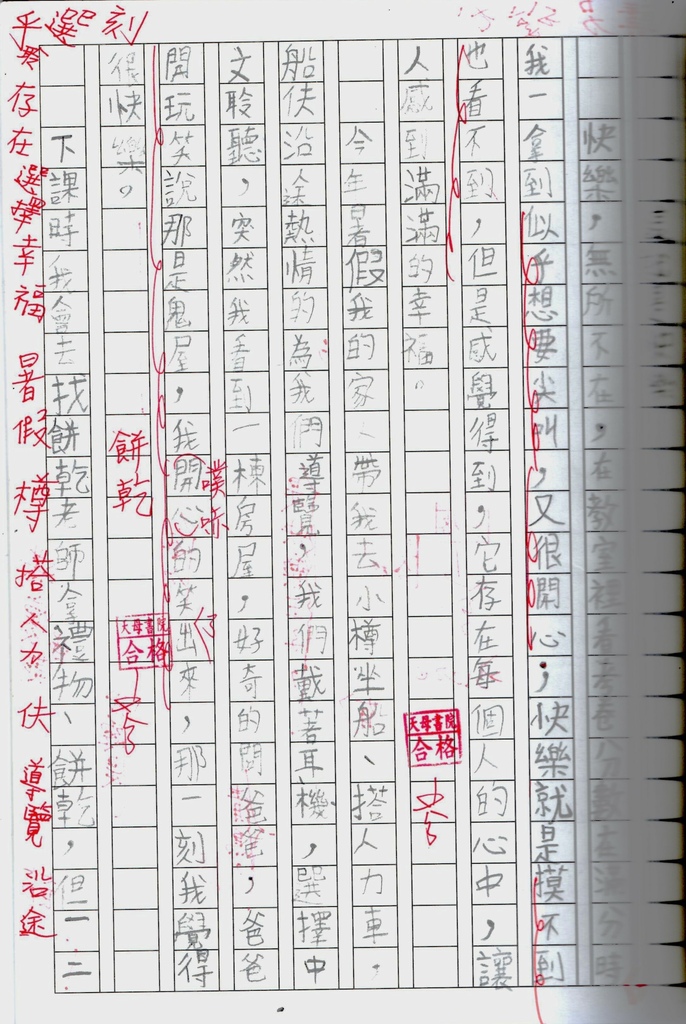 快樂，無所不在，在教室裡看考卷分數在滿分時
我一拿到似乎想要尖叫，又很開心，快樂就是摸不到
也看不到，但是感覺得到，它存在每個人的心中，讓
人感到滿滿的幸福。
天母書院
合格
今年暑假我的家人帶我去小樽坐船、搭人力車，
船伕沿途熱情的為我們導覽，我們戴著耳機，選擇中
文聆聽，突然我看到一棟房屋，好奇的問爸爸，爸爸
開玩笑說那是鬼屋，我開心的笑出來，那一刻我覺得
噗哧
很快樂。
餅乾
天母書院
合格
下課時我會去找餅乾老師拿禮物、餅乾，但一二
選刻
乎 存在 選擇 幸福 暑假 樽 搭 人力 伕 導覽 沿途